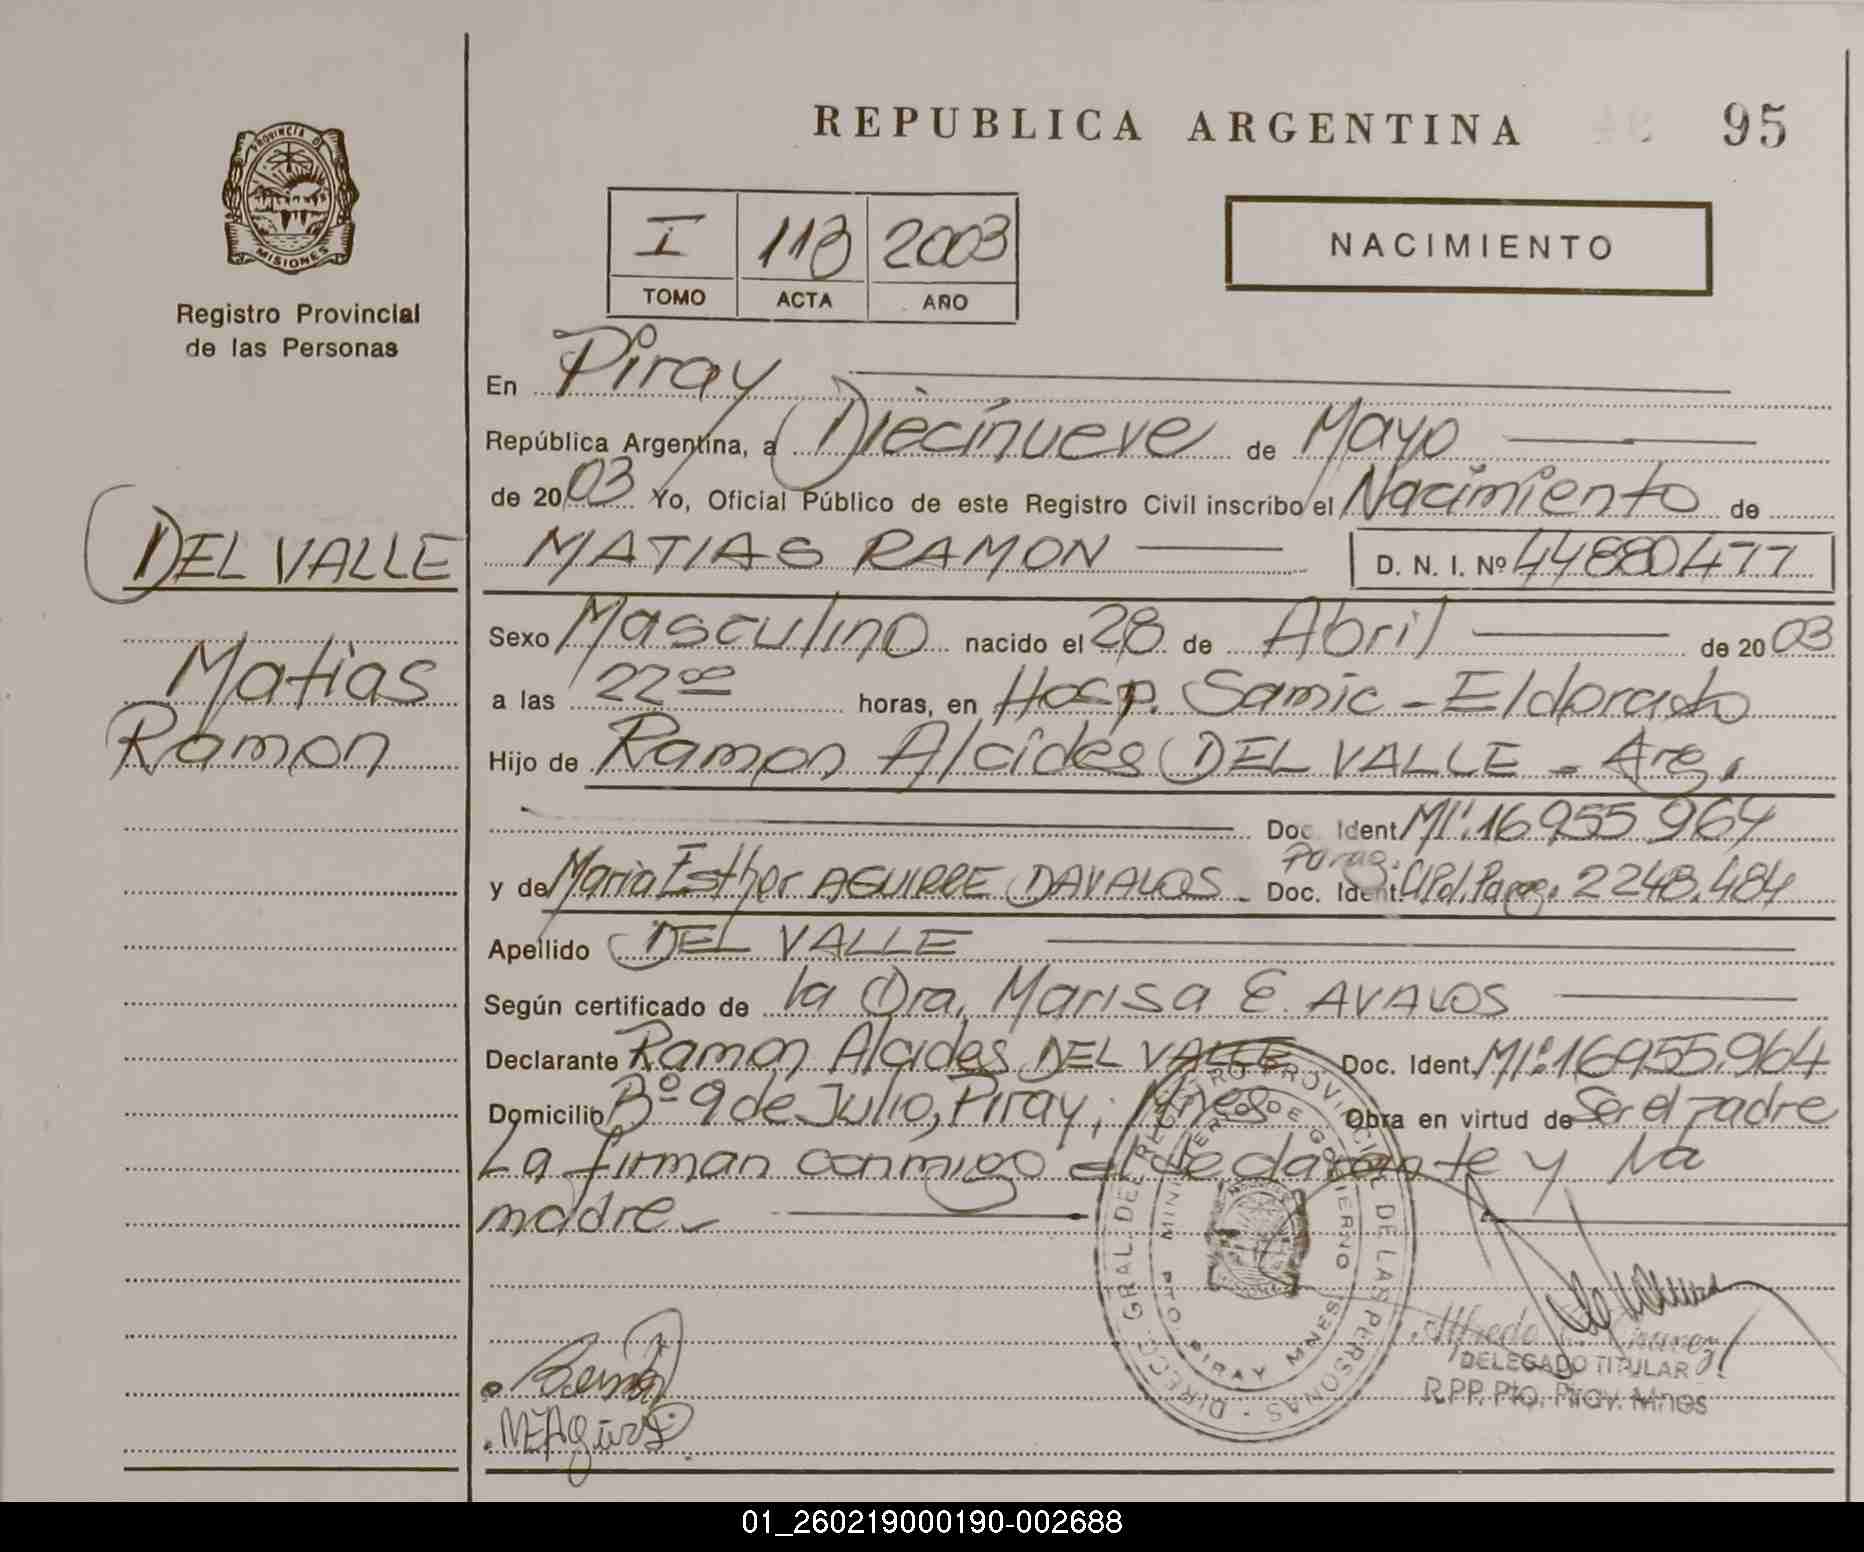 REPUBLICA ARGENTINA 95
PROVINCIA D
MISIONES
Registro Provincial
de las Personas
I 113 2003
TOMO ACTA AÑO
NACIMIENTO
En Piray
República Argentina, a Diecinueve de Mayo
de 2003 Yo, Oficial Público de este Registro Civil inscribo el Nacimiento de
DEL VALLE
MATIAS RAMON D. N. I. Nº 44880477
Matias
Ramon
Sexo Masculino nacido el 28 de Abril de 2003
a las 22 00 horas, en Hosp. Samic - Eldorado
Hijo de Ramon Alcides DEL VALLE - Arg.
Doc. Ident. MI: 16 955 964
Parag.
y de Maria Esther AGUIRRE DAVALOS - Doc. Ident. CI Pol. Parag. 2248.484
Apellido DEL VALLE
Según certificado de la Dra. Marisa E. AVALOS
Declarante Ramon Alcides DEL VALLE Doc. Ident. MI: 16955.964
Domicilio Bº 9 de Julio, Piray, Mnes Obra en virtud de Ser el padre
La firman conmigo el declarante y la
madre
DIRECC. GRAL. DEL REGISTRO PROVINCIAL DE LAS PERSONAS
MINISTERIO DE GOBIERNO
PTO. PIRAY MNES.
Alfredo
DELEGADO TITULAR
R.P.P. Pto. Piray. Mnes
01_260219000190-002688